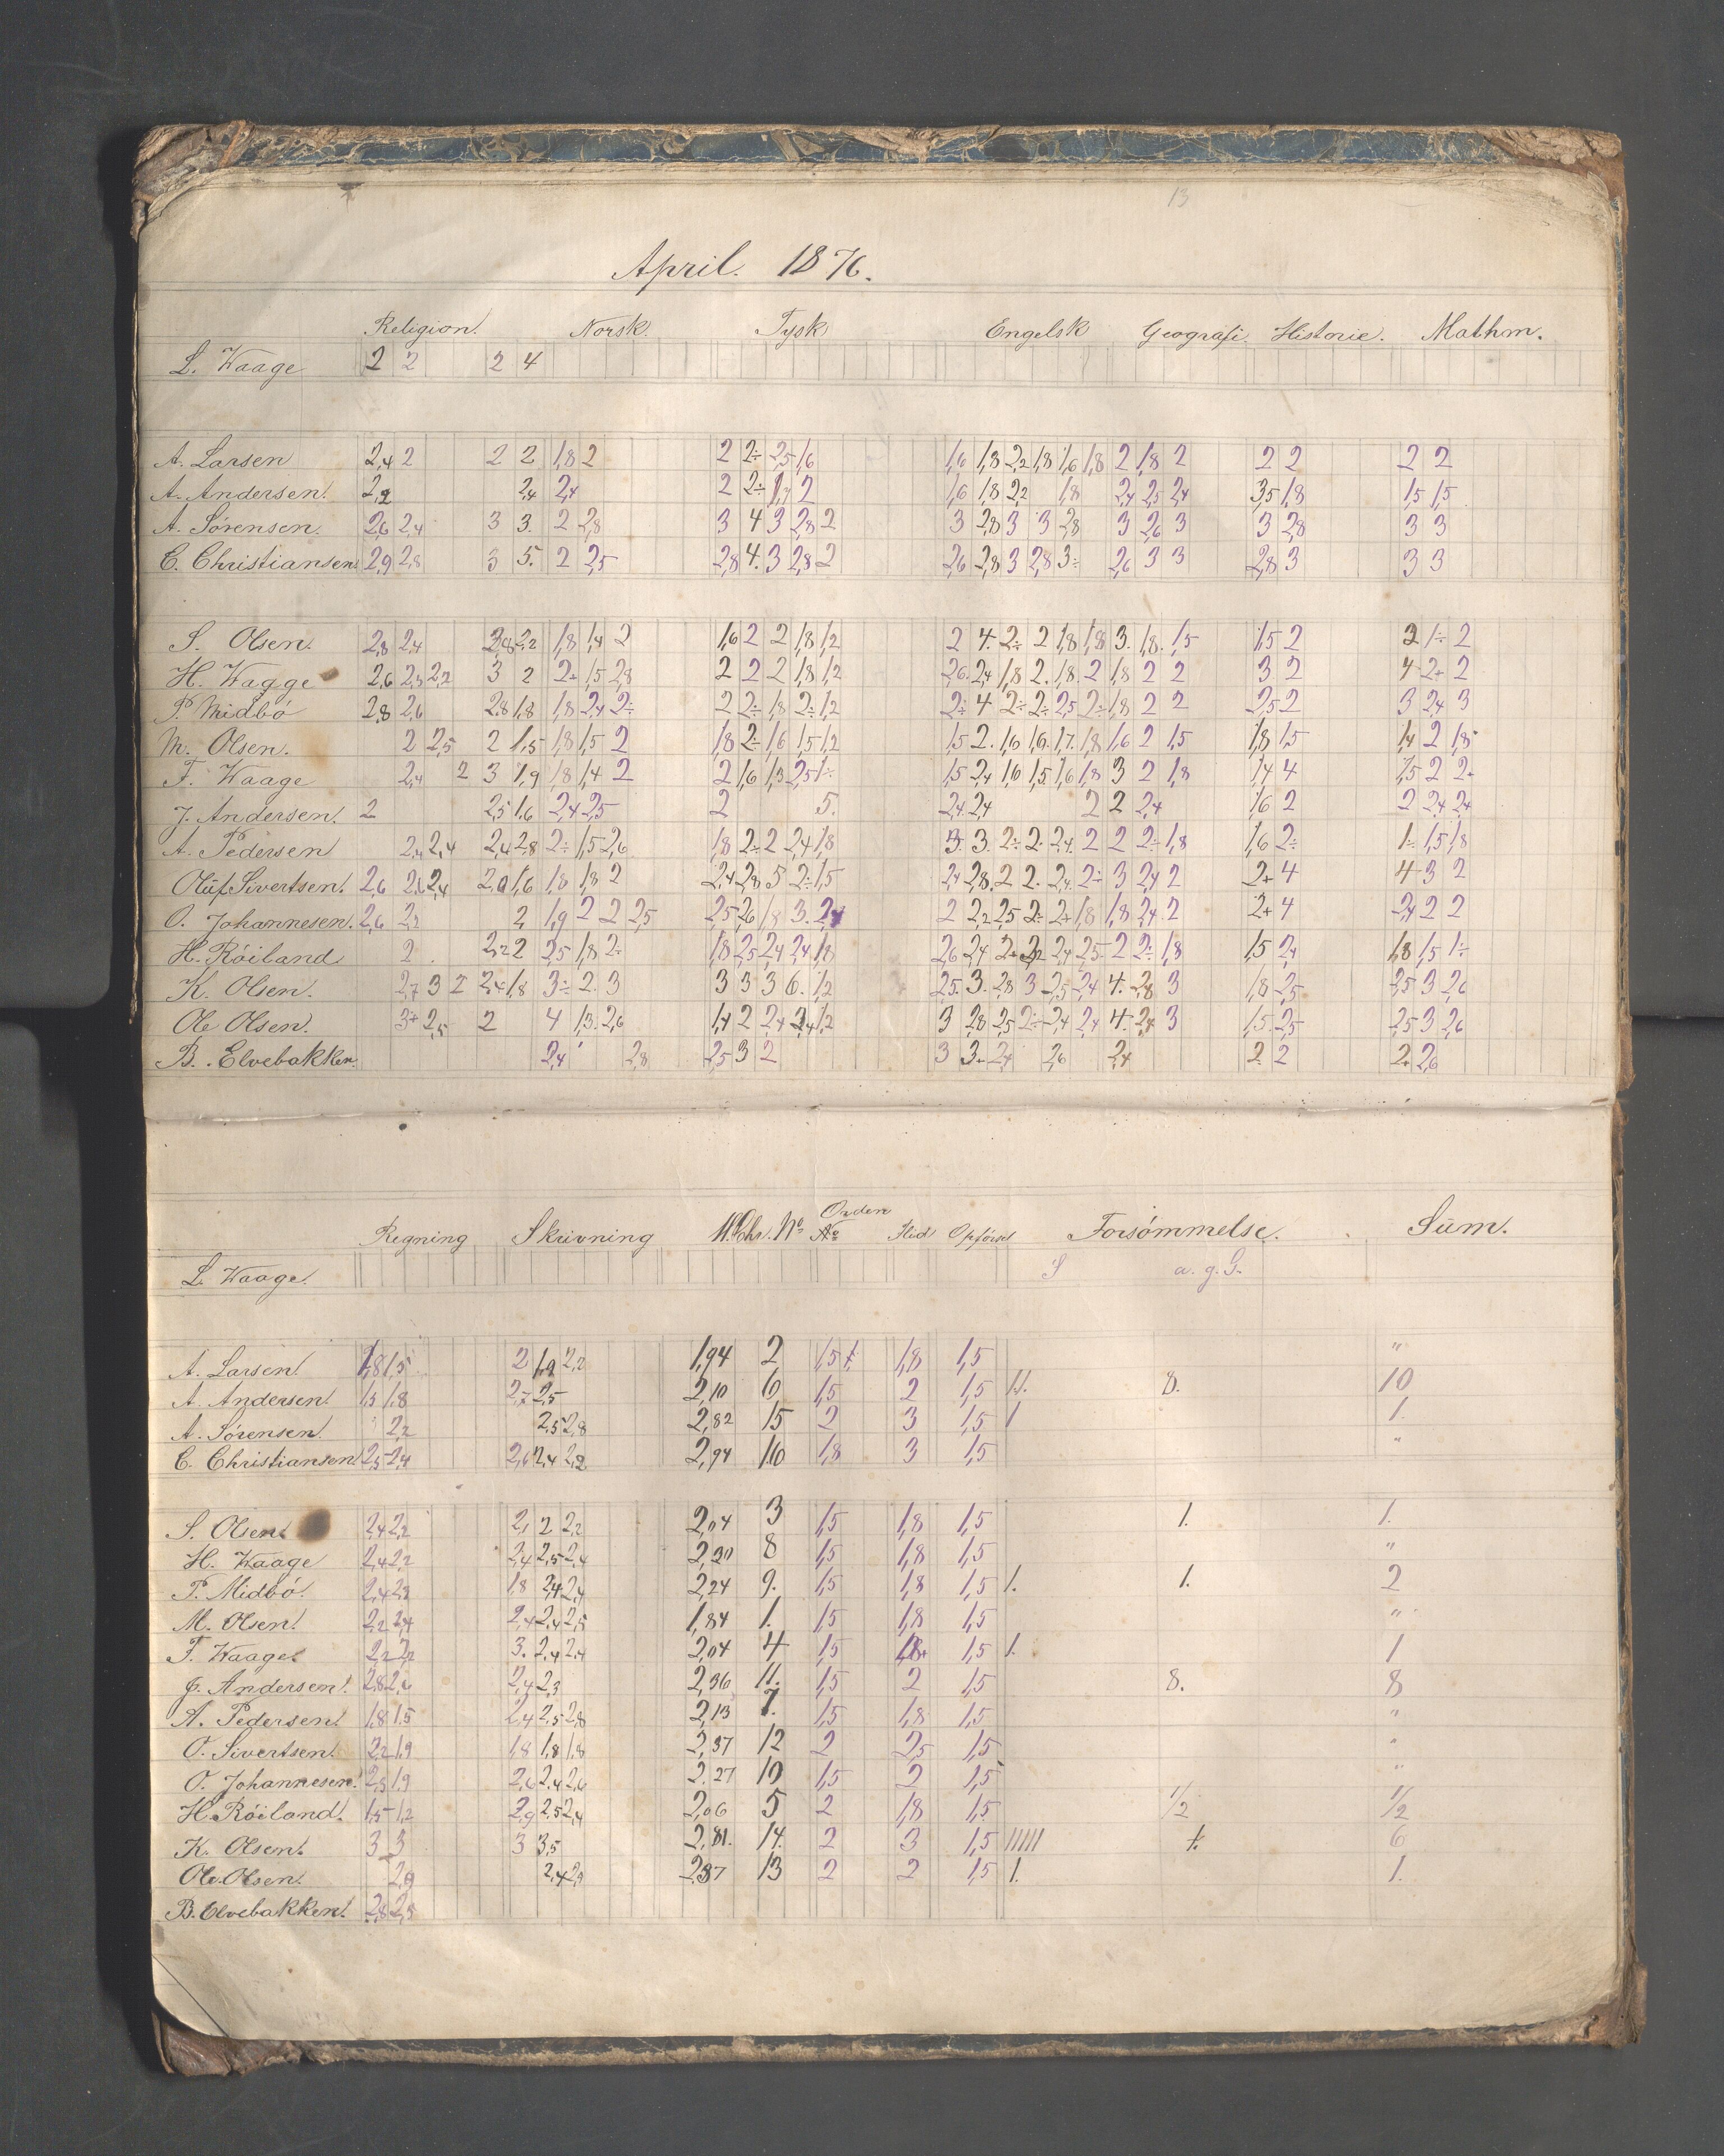 13
April. 1876.
Religion. Norsk. Tysk Engelsk Geografi. Historie. Mathm.
L. Waage 2 2 2 4
A. Larsen 2,4 2 2 2 1,8 2 2 2÷ 2,5 1,6 1,6 1,8 2,2 1,8 1,6 1,8 2 1,8 2 2 2 2 2
A. Andersen. 2,2 2,4 2,4 2 2÷ 1,7 2 1,6 1,8 2,2 1,8 2,4 2,5 2,4 3,5 1,8 1,5 1,5
A. Sörensen. 2,6 2,4 3 3. 2 2,8 3 4 3 2,8 2 3 2,8 3 3 2,8 3 2,6 3 3 2,8 3 3
C. Christiansen 2,9 2,8 3 5. 2 2,5 2,8 4. 3 2,8 2 2,6 2,8 3 2,8 3÷ 2,6 3 3 2,8 3 3 3
S. Olsen. 2,8 2,4 2,2 1,8 1,4 2 1,6 2 2 1,8 1,2 2 4. 2÷ 2 1,8 1,8 3. 1,8. 1,5 1,5 2 2 1÷ 2
H. Waage 2,6 2,3 2,2 3 2 2+ 1,5 2,8 2 2 2 1,8 1,2 2,6. 2,4 1,8 2. 1,8. 2 1,8 2 2 3 2 4 2+ 2
P. Midbö 2,8 2,6 2,8 1,8 1,8 2,4 2÷ 2 2÷ 1,8 2÷ 1,2 2÷ 4 2÷ 2÷ 2,5 2÷ 1,8 2 2 2,5 2 3 2,4 3
M. Olsen. 2 2,5 2 1,5 1,8 1,5 2 1,8 2÷ 1,6 1,5 1,2 1,5 2. 1,6 1,6. 1,7. 1,8 1,6 2 1,5 1,8 1,5 1,4 2 1,8
F. Waage 2,4 2 3 1,9 1,8 1,4 2 2 1,6 1,3 2,5 1÷ 1,5 2,4 1,6 1,5 1,6 1,8 3 2 1,8 1,4 4 1,5 2 2+
J. Andersen. 2 2,5 1,6 2,4 2,5 2 5. 2,4 2,4 2 2 2,4 1,6 2 2 2,4 2,4
A. Pedersen 2,4 2,4 2,4 2,8 2÷ 1,5 2,6 1,8 2÷ 2 2,4 1,8 3. 3. 2÷ 2. 2,4. 2 2 2÷ 1,8 1,6 2÷ 1÷ 1,5 1,8
Oluf Sivertsen. 2,6 2,6 2,4 2,0 1,6 1,8 1,8 2 2,4 2,8 5 2÷ 1,5 2,4 2,8. 2 2. 2,4. 2÷ 3 2,4 2 2+ 4 4 3 2
O. Johannesen. 2,6 2,2 2, 1,9 2 2 2,5 2,5 2,6 1,8 3. 2,4 2 2,2 2,5 2÷ 2+ 1,8 1,8 2,4. 2 2+ 4 2,4 2 2
H. Röiland 2 . 2,2 2 2,5 1,8 2÷ 1,8 2,5 2,4 2,4 1,8 2,6 2,4 2+ 2,4 2,5 2 2÷ 1,8 1,5 2,4 1,8 1,5 1÷
K. Olsen. 2,7 3 2 2,4 1,8 3÷ 2. 3 3 3 3 6. 1,2 2,5. 3. 2,8 3 2,5 2,4 4. 2,8 3 1,8 2,5 2,5 3 2,6
Ole Olsen. 3+ 2,5 2 4 1,3. 2,6 1,4 2 2,4 2,4 1,2 3 2,8 2,5 2÷ 2,4 2,4 4. 2,4 3 1,5. 2,5 2,5 3 2,6
B. Elvebakken. 2,4 2,8 2,5 3 2 3 3+ 2,4 2,6 2,4 2 2 2+ 2,6
Orden
Regning Skrivning H.Chr. No Flid Opförsel Forsömmelse. Sum.
L. Waage. S a. g. G.
A. Larsen. 1,8 1,5 2 1,9 2,2 1,94 2 1,5 1,8 1,5 "
A. Andersen. 1,5 1,8 2,7 2,5 2,10 6 1,5 2 1,5 11. 8. 10
A. Sörensen. 2,2 2,5 2,8 2,82 15 2 3 1,5 1 1.
C. Christiansen. 2,5 2,4 2,6 2,4 2,2 2,94 16 1,8 3 1,5 "
S. Olsen. 2,4 2,2 2,1 2 2,2 2,04 3 1,5 1,8 1,5 1. 1.
H. Waage 2,4 2,2 2,4 2,5 2,4 2,20 8 1,5 1,8 1,5 "
P. Midbö. 2,4 2,3 1,8 2,4 2,4 2,24 9. 1,5 1,8 1,5 1. 1. 2
M. Olsen. 2,2 2,4 2,4 2,4 2,5 1,84 1. 1,5 1,8 1,5 "
F. Waage. 2,2 2,2 3. 2,4 2,4 2,04 4 1,5 1,8+ 1,5 1. 1
J. Andersen. 2,8 2,6 2,4 2,3 2,36 11. 1,5 2 1,5 8. 8
A. Pedersen. 1,8 1,5 2,4 2,5 2,8 2,13 7. 1,5 1,8 1,5 "
O. Sivertsen. 2,2 1,9 1,8 1,8 1,8 2,37 12 2 2,5 1,5 "
O. Johannesen. 2,3 1,9 2,6 2,4 2,6 2,27 10 1,5 2 1,5 "
H. Röiland. 1,5 1,2 2,9 2,5 2,4 2,06 5 2 1,8 1,5 1/2 1/2
K. Olsen. 3 3 3 3,5 2,81. 14. 2 3 1,5 11111 1. 6
Ole Olsen. 2,9 2,4 2,3 2,37 13 2 2 1,5 1. 1.
B. Elvebakken. 2,8 2,3